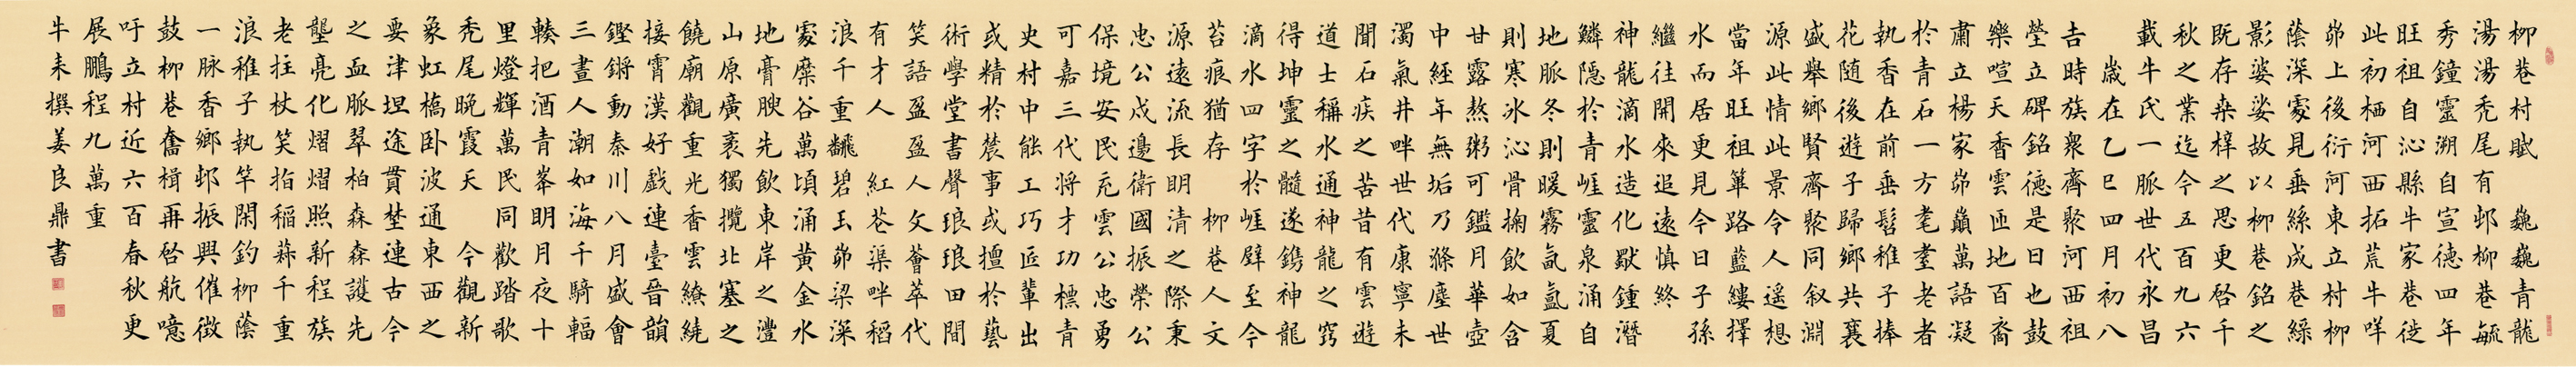 柳巷村賦 巍巍青龍
湯湯禿尾有邨柳巷毓
秀鐘靈溯自宣德四年
旺祖自沁縣牛家巷徙
此初栖河西拓荒牛咩
峁上後衍河東立村柳
蔭深處見垂絲成巷綠
影婆娑故以柳巷銘之
既存桑梓之思更啓千
秋之業迄今五百九六
載牛氏一脈世代永昌
歲在乙巳四月初八
吉時族眾齊聚河西祖
塋立碑銘德是日也鼓
樂喧天香雲匝地百裔
肅立楊家峁巔萬語凝
於青石一方耄耋老者
執香在前垂髫稚子捧
花隨後遊子歸鄉共襄
盛舉鄉賢齊聚同叙淵
源此情此景令人遙想
當年旺祖篳路藍縷擇
水而居更見今日子孫
繼往開來追遠慎終
神龍滴水造化猷鍾潛
鱗隱於青崕靈泉涌自
地脈冬則暖霧氤氳夏
則寒冰沁骨掬飲如含
甘露熬粥可鑑月華壺
中經年無垢乃滌塵世
濁氣井畔世代康寧未
聞石疾之苦昔有雲遊
道士稱水通神龍之竅
得坤靈之髓遂鐫神龍
滴水四字於崕壁至今
苔痕猶存 柳巷人文
源遠流長明清之際秉
忠公戍邊衛國振榮公
保境安民充雲公忠勇
可嘉三代將才功標青
史村中能工巧匠輩出
或精於農事或擅於藝
術學堂書聲琅琅田間
笑語盈盈人文薈萃代
有才人 紅花渠畔稻
浪千重飜碧玉峁梁深
處糜谷萬頃涌黃金水
地膏腴先飲東岸之灃
山原廣袤獨攬北塞之
饒廟觀重光香雲繚繞
接霄漢好戲連臺晉韻
鏗鏘動秦川八月盛會
三晝人潮如海千騎輻
輳把酒青峯明月夜十
里燈輝萬民同歡踏歌
禿尾晚霞天 今觀新
象虹橋臥波通東西之
要津坦途貫埜連古今
之血脈翠柏森森護先
壟亮化熠熠照新程族
老拄杖笑指稻蒜千重
浪稚子執竿閑釣柳蔭
一脈香鄉邨振興催徵
鼓柳巷奮楫再啓航噫
吁立村近六百春秋更
展鵬程九萬重
牛耒撰姜良鼎書